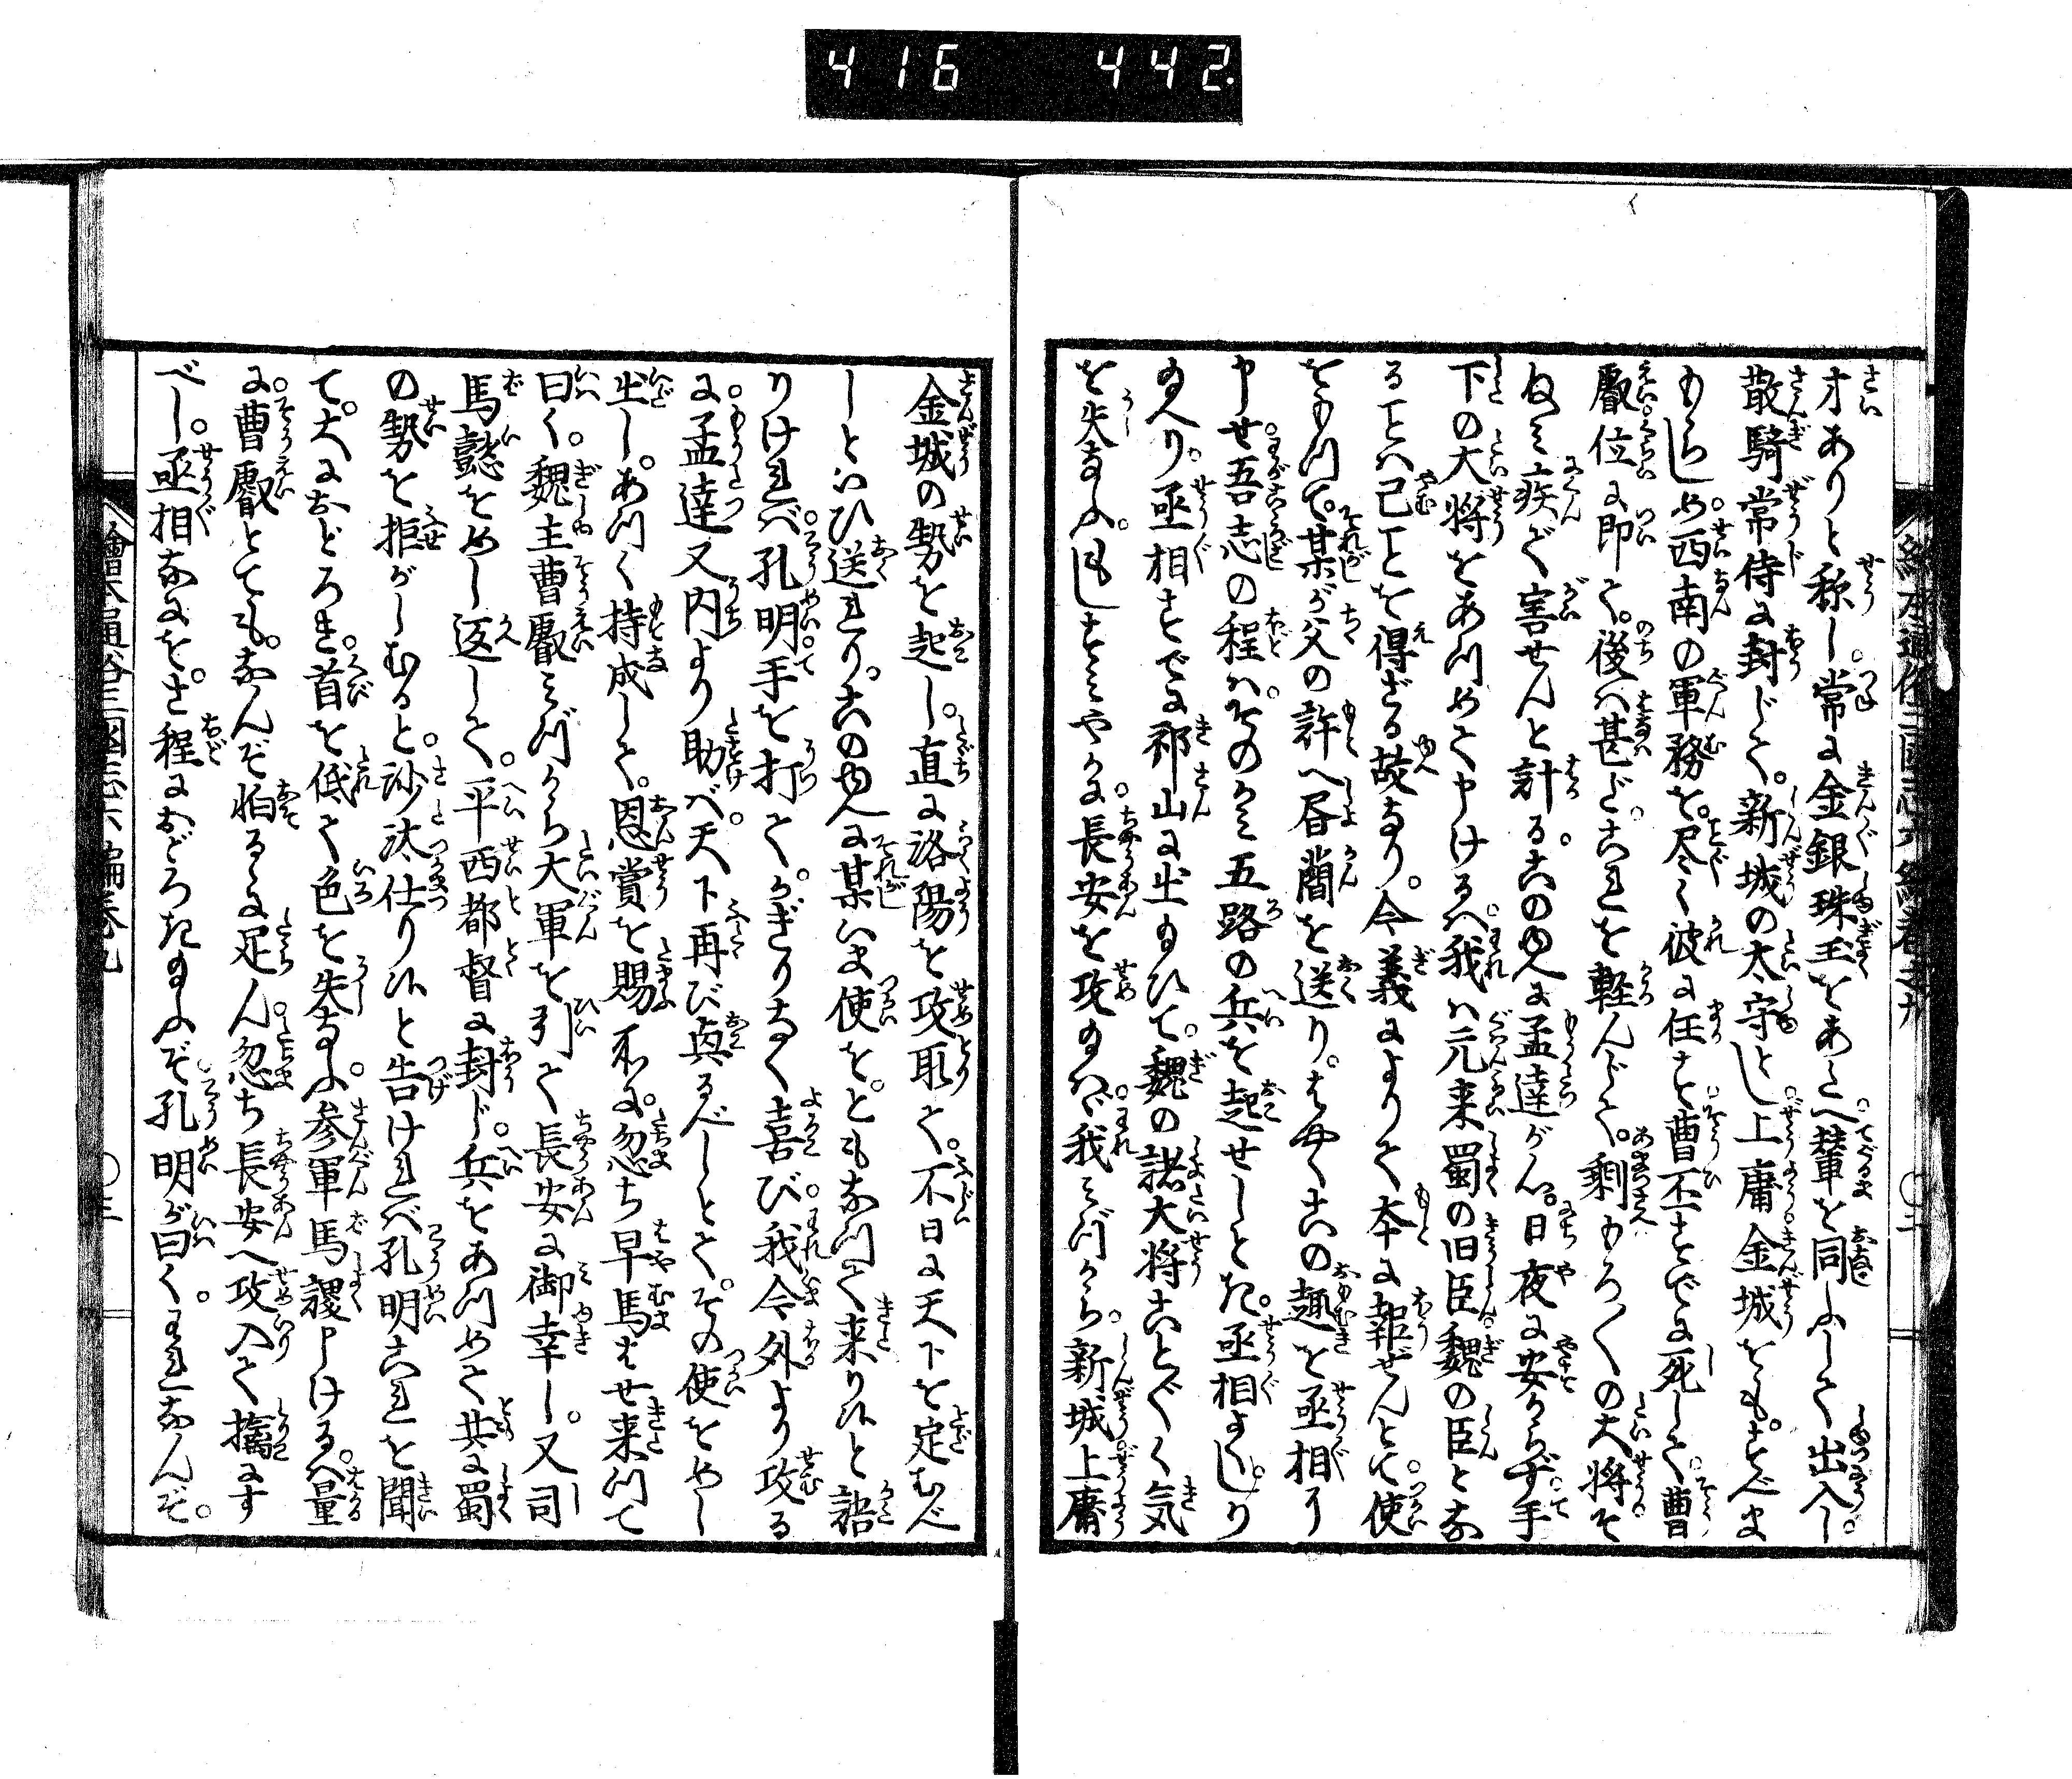 416 442
才ありと称し。常に金銀珠玉をあたへ。輦を同ふして出入し。
散騎常侍に封じて。新城の太守とし。上庸金城をも。すべま
もらしめ。西南の軍務を。尽く彼に任す。曹丕すでに死して。曹
叡位に即て。後は甚ど。これを軽んじて。剰もろ〳〵の大将そ
ねミ疾ぐ害せんと計る。このゆへに孟達が。日夜に安からず。手
下の大将をあつめて申けるハ。我ハ元来蜀の旧臣。魏の臣とな
ることハ已ことを得ざる故なり。今義によりて本に報ぜんとて。使
をもつて。某が父の許へ昏簡を送り。はやくこの趣を丞相り
申せ吾志の程ハ。そのかミ五路の兵を起せしとき。丞相よくしり
給へり。丞相すでに祁山に出給ひて。魏の諸大将ことごとく気
を失なふ。もしすミやかに。長安を攻給ハヾ。我ミづから。新城上庸
金城の勢を起し。直に洛陽を攻取て。不日に天下を定むべ
しといひ送れり。このゆへに某いま使を。ともなつて来り候と語
りけれバ。孔明手を打て。かぎりなく喜び。我今外より攻る
に。孟達又内より助バ。天下再び興るべしとて。その使をやし
出し。あつく持成して。恩賞を賜ふに。忽ち早馬はせ来つて
曰く。魏主曹叡ミづから大軍を引て長安に御幸し。又司
馬懿をめし返して。平西都督に封じ。兵をあつめて共に蜀
の勢を拒がしむると。沙汰仕り候と告けれバ孔明これを聞
て。大におどろき。首を低て色を失なふ。参軍馬謖申けるハ。量
に。曹叡とても。なんぞ怕るゝに足ん。忽ち長安へ攻入て擒にす
べし。丞相なにを。さ程におどろき給ふぞ。孔明が曰く。われなんぞ。
繪本通俗三國志六編巻之九
〇二
繪本通俗三國志六編巻九
〇三